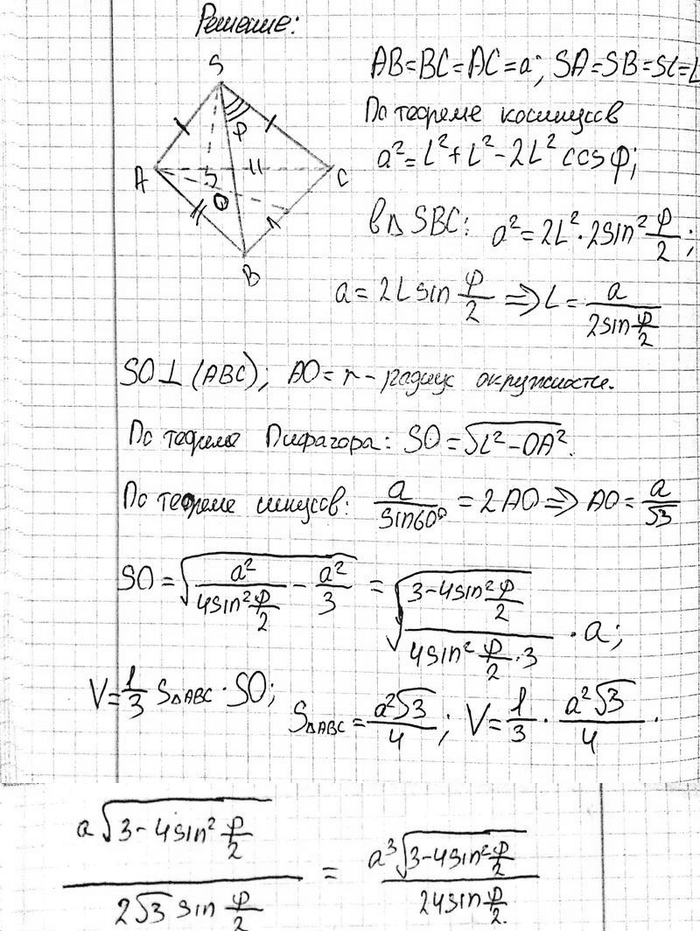 Решение:
S
φ
A
O
C
B
AB=BC=AC=a; SA=SB=SC=L
По теореме косинусов
a²=L²+L²-2L² cos φ;
в Δ SBC: a²=2L²·2sin² φ/2;
a = 2L sin φ/2 ⇒ L = a/(2sin φ/2)
SO⊥(ABC); AO=r - радиус окружности.
По теореме Пифагора: SO=√(L²-OA²).
По теореме синусов: a/sin60° = 2AO ⇒ AO = a/√3
SO = √(a²/(4sin² φ/2) - a²/3) = √((3-4sin² φ/2)/(4sin² φ/2 · 3)) · a;
V=1/3 S△ABC · SO; S△ABC = a²√3/4; V = 1/3 · a²√3/4 ·
a√(3-4sin² φ/2)/(2√3 sin φ/2) = a³√(3-4sin² φ/2)/(24sin φ/2).